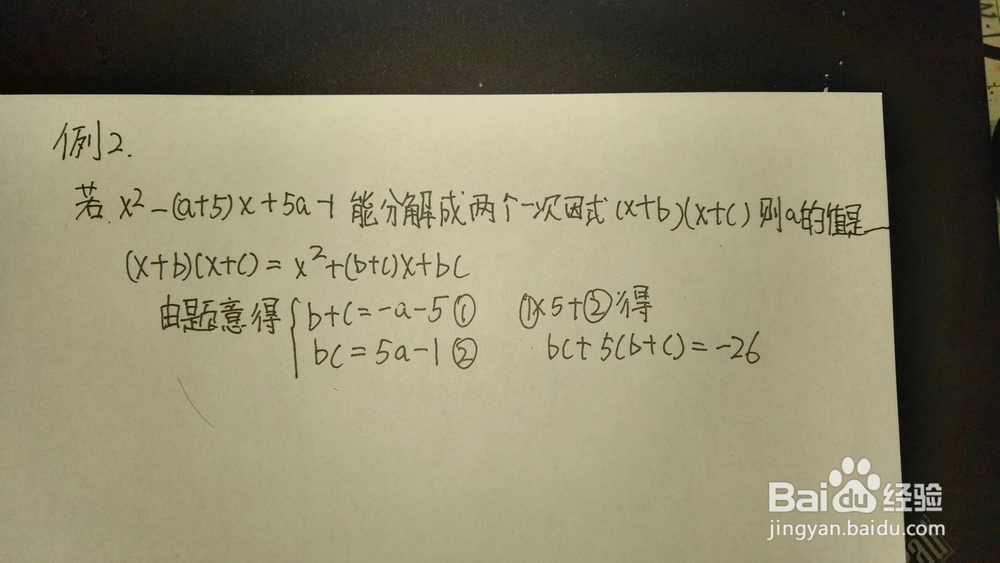 例2.
若 x²-(a+5)x+5a-1 能分解成两个一次因式 (x+b)(x+c) 则a的值是__
(x+b)(x+c)=x²+(b+c)x+bc
由题意得 { b+c=-a-5① ①×5+②得
bc=5a-1② bc+5(b+c)=-26
Baidu经验
jingyan.baidu.com